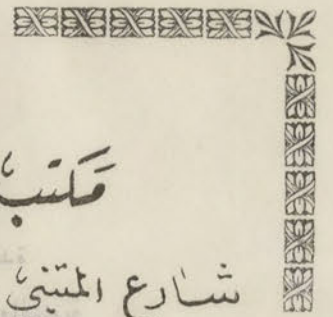 مكتب
شارع المتنبي